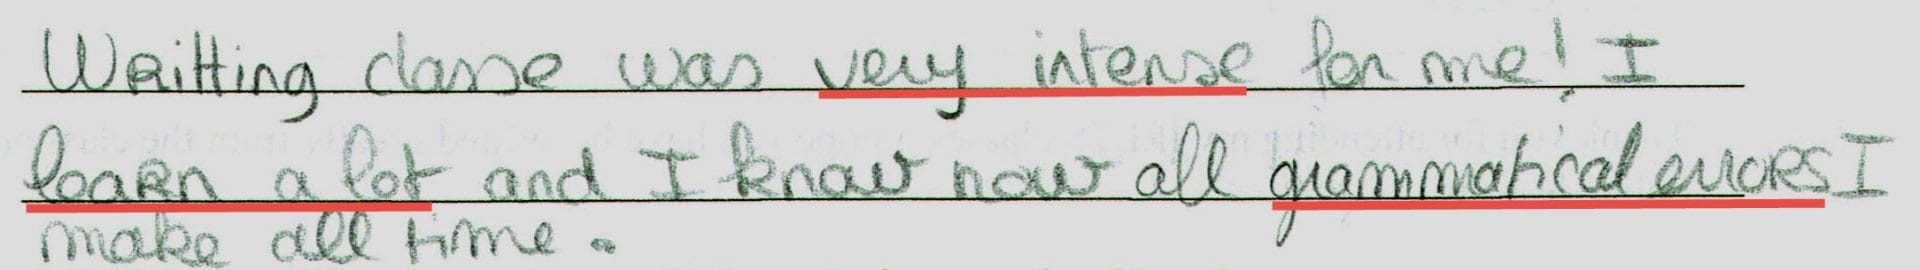 Writting classe was very intense for me! I
learn a lot and I know now all grammatical errors I
make all time.